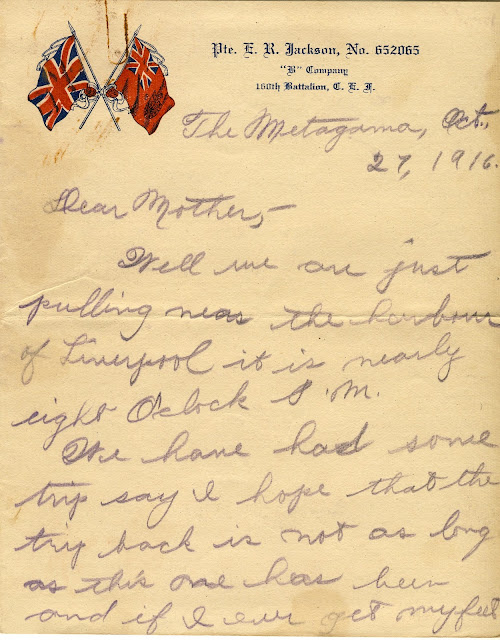 Pte. E. R. Jackson, No. 652065
"B" Company
160th Battalion, C. E. F.
The Metagama, Oct.,
27, 1916.
Dear Mother,-
Well we are just
pulling near the harbour
of Liverpool it is nearly
eight O'clock P.M.
We have had some
trip say I hope that the
trip back is not as long
as this one has been
and if I ever get my feet